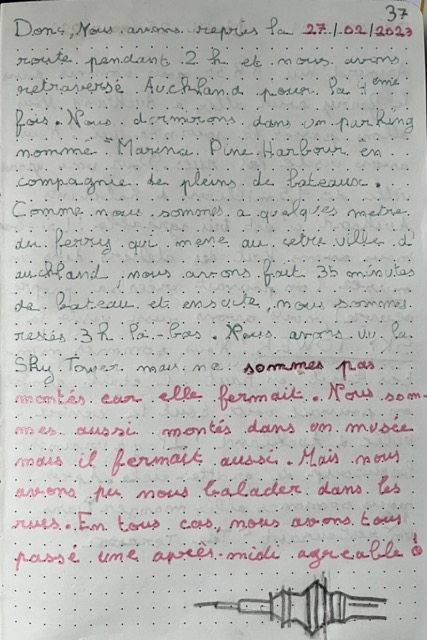 37
Donc, Nous avons repris la 27/02/2023
route pendant 2 h et nous avons
retraversé Auckland pour la 1 eme
fois. Nous dormirons dans un parking
nommé "Marina Pine Harbour en
compagnie de pleins de bateaux.
Comme nous sommes a quelques metre
du ferry qui mene au cetre ville d'
auckland, nous avons fait 35 minutes
de bateau et ensuite, nous sommes
restés 3h là-bas. Nous avons vu la
Sky Tower mais ne sommes pas
montés car elle fermait. Nous som-
mes aussi montés dans un musée
mais il fermait aussi. Mais nous
avons pu nous balader dans les
rues. En tous cas, nous avons tous
passé une après-midi agreable